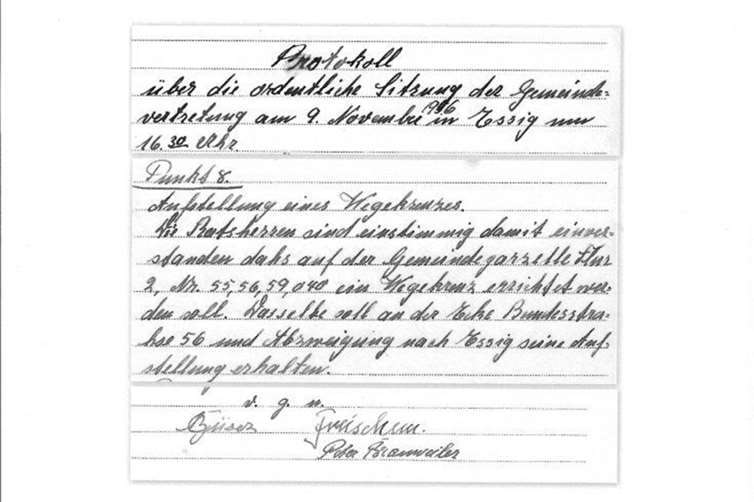 Protokoll
über die ordentliche Sitzung der Gemeinde-
vertretung am 9. November 1956 in Essig um
16.30 Uhr.
Punkt 8.
Aufstellung eines Wegekreuzes.
Die Ratsherren sind einstimmig damit einver-
standen dahs auf der Gemeindeparzelle Flur
2, Nr. 55,56,59,040 ein Wegekreuz errichtet wer-
den soll. Dasselbe soll an der Ecke Bundesstra-
hse 56 und Abzweigung nach Essig seine Auf-
stellung erhalten.
v. g. u.
Peter Braunweiler